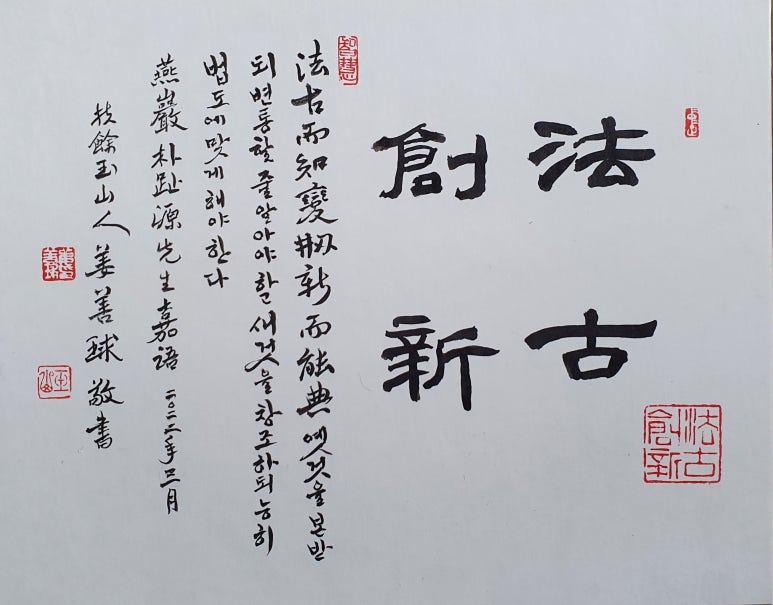 法古
創新
法古創新
智慧
法古而知變刱新而能典 옛것을 본받
되 변통할 줄 알아야 한 새것을 창조하되 능히
법도에 맞게 해야한다
燕巖 朴趾源先生嘉語 二〇二二年 三月
扶餘玉山人 姜善球 敬書